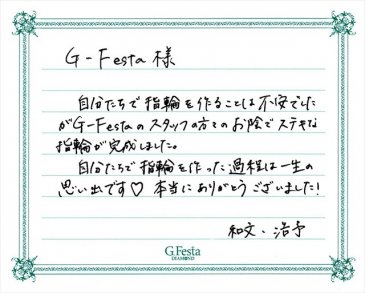 G-Festa 様
自分たちで指輪を作ることは不安でした
がG-Festaのスタッフの方々のお陰でステキな
指輪が完成しました。
自分たちで指輪を作った過程は一生の
思い出です♡ 本当にありがとうございました!
和文・浩予
G.Festa
DIAMOND